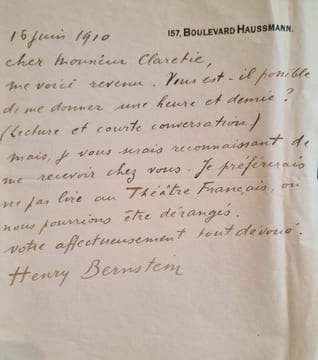 157, BOULEVARD HAUSSMANN.
15 juin 1910
cher Monsieur Claretie,
me voici revenu. Vous est-il possible
de me donner une heure et demie ?
(Lecture et courte conversation)
Mais, je vous serais reconnaissant de
me recevoir chez vous. Je préférerais
ne pas lire au Théâtre Français, où
nous pourrions être dérangés.
votre affectueusement tout dévoué.
Henry Bernstein